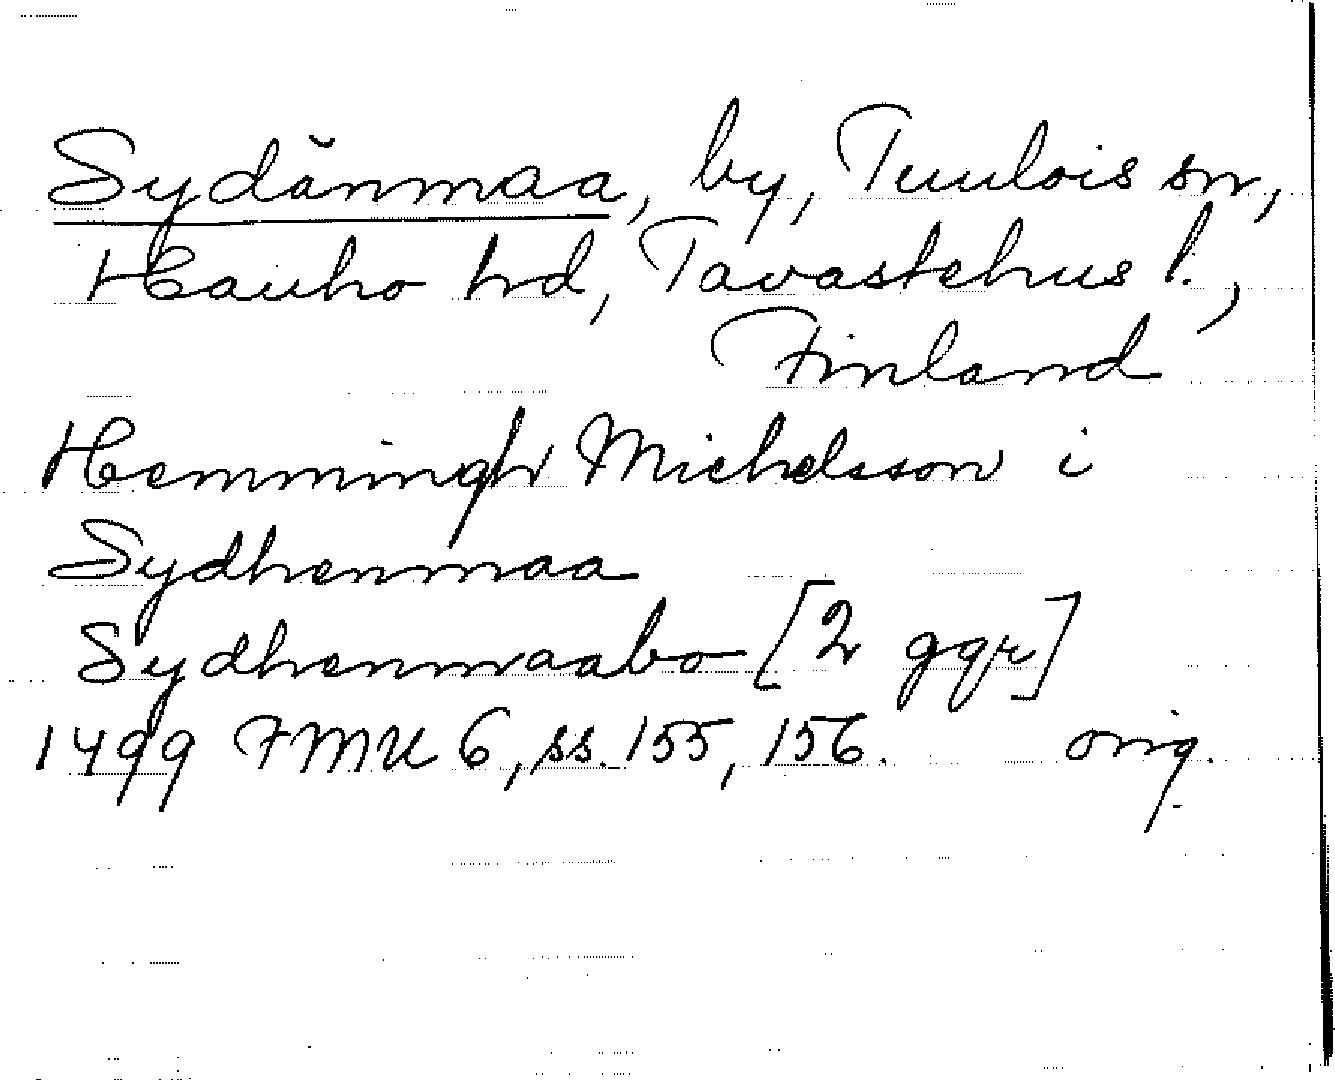 Sydänmaa, by, Tuulois sn,
Hauho hd, Tavastehus l.,
Finland
Hemmingh Michelsson i
Sydhenmaa
Sydhenmaabo [2 ggr]
1499 FMU 6, ss. 155, 156. orig.